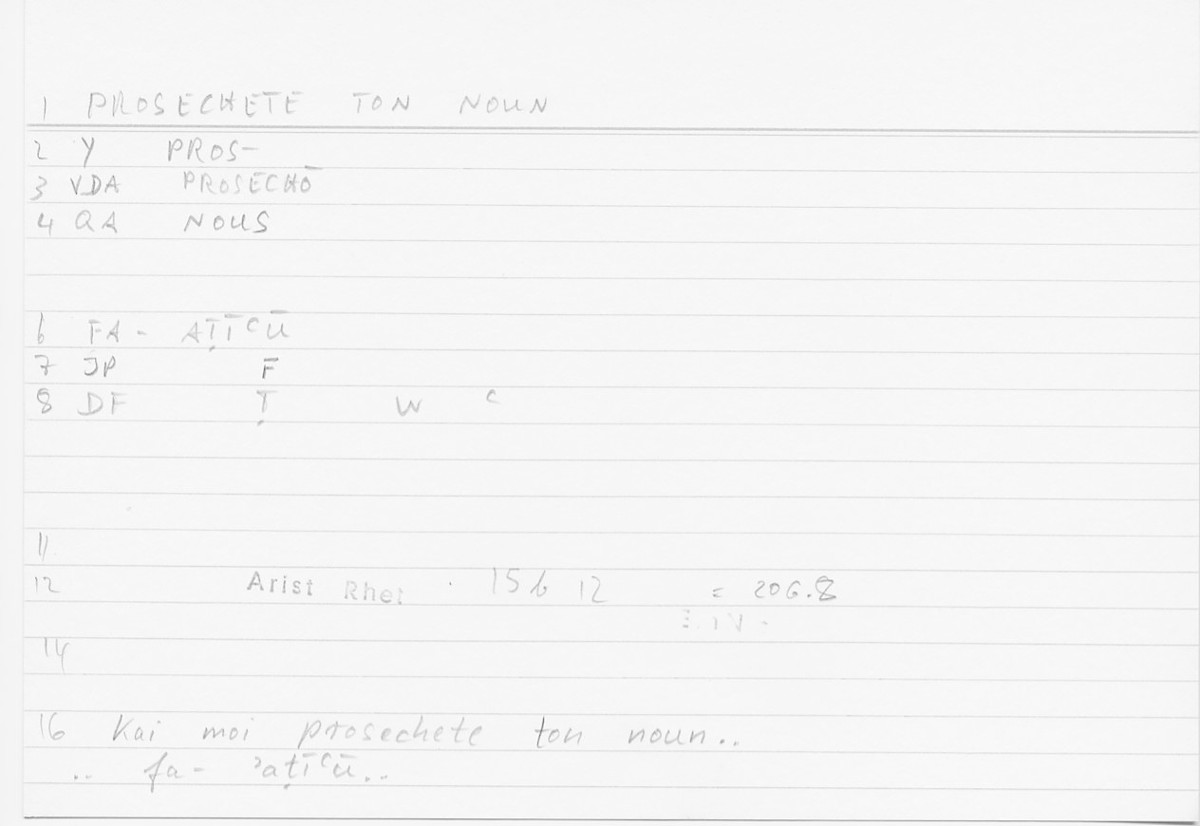 1 PROSECHETE TON NOUN
2 Y PROS-
3 VDA PROSECHŌ
4 QA NOUS
6 FA- AṬĪʿŪ
7 JP F
8 DF Ṭ W ʿ
11
12 Arist Rhet . 15 b 12 = 206.8
14
16 Kai moi prosechete ton noun..
.. fa- ʾaṭīʿū..